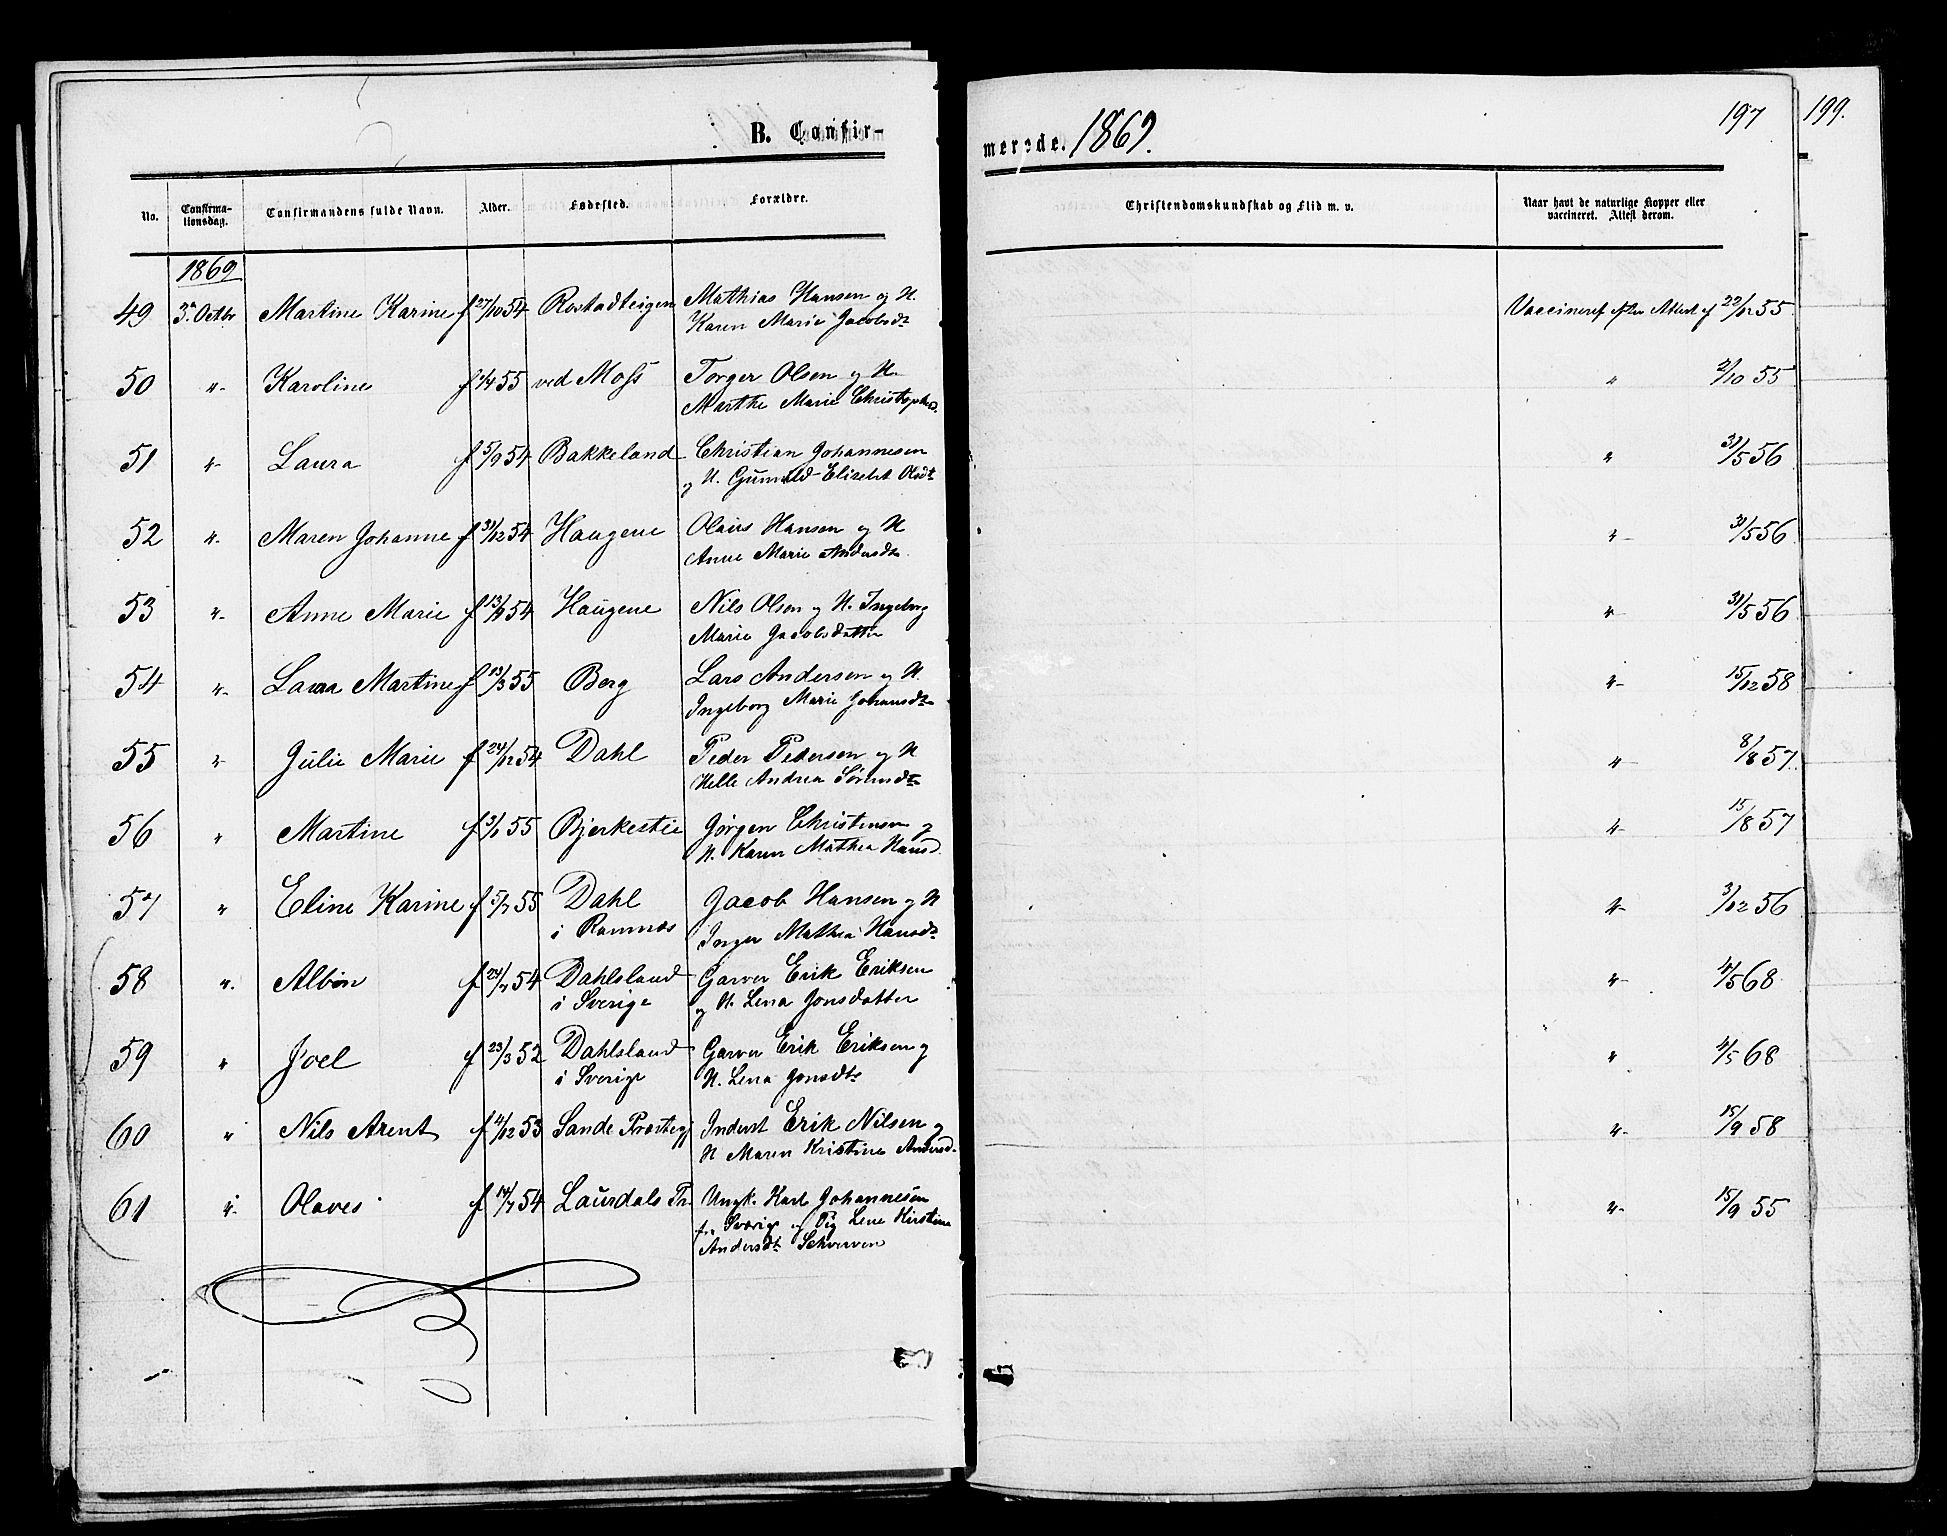 B. Confir-
merede. 1869.
197
199.
No. Confirma-tionsdag. Confirmandens fulde Navn. Alder. Fødested. Forældre. Christendomskundskab og Flid m. v. Naar havt de naturlige Kopper eller vaccineret. Attest derom.
1869
49 3. Octbr Martine Karine f 27/10 54 Rostadteigen Mathias Hansen og H. Vaccineret efter Attest af 22/12 55
Karen Marie Jacobsdt
50 " Karoline f 1/4 55 ved Moss Torger Olsen og H. " 2/10 55
Marthe Marie Christophd.
51 " Laura f 5/9 54 Bakkeland Christian Johannesen " 31/5 56
og H. Gunnild Elisebet Olsdt
52 " Maren Johanne f 31/12 54 Haugene Olaus Hansen og H " 31/5 56
Anne Marie Andersdt
53 " Anne Marie f 13/9 54 Haugene Nils Olsen og H. Ingeborg " 31/5 56
Marie Jacobsdatter
54 " Laura Martine f 13/3 55 Berg Lars Andersen og H. " 15/12 58
Ingeborg Marie Johansdt
55 " Julie Marie f 24/12 54 Dahl Peder Pedersen og H " 8/8 57
Helle Andrea Sørensdt
56 " Martine f 3/1 55 Bjerkestie Jørgen Christensen og " 15/8 57
H. Karen Mathea Hansd.
57 " Eline Karine f 5/7 55 Dahl Jacob Hansen og H " 3/12 56
i Ramnæs Inger Mathea Hansdt
58 " Albin f 24/7 54 Dahlsland Garver Erik Eriksen " 4/5 68
i Sverige og H. Lena Jonsdatter
59 " Joel f 23/3 52 Dahlsland Garver Erik Eriksen og " 4/5 68
i Sverige H. Lena Jonsdt
60 " Nils Arent f 4/12 53 Sande Præstegj Inderst Erik Nilsen og " 15/9 58
H Maren Kristine Andersd.
61 " Olaves f 14/7 54 Laurdals Pr. Ungk. Karl Johannesen " 15/9 55
fra Sverige og Pig Lene Kirstine
Andersdt Schverven